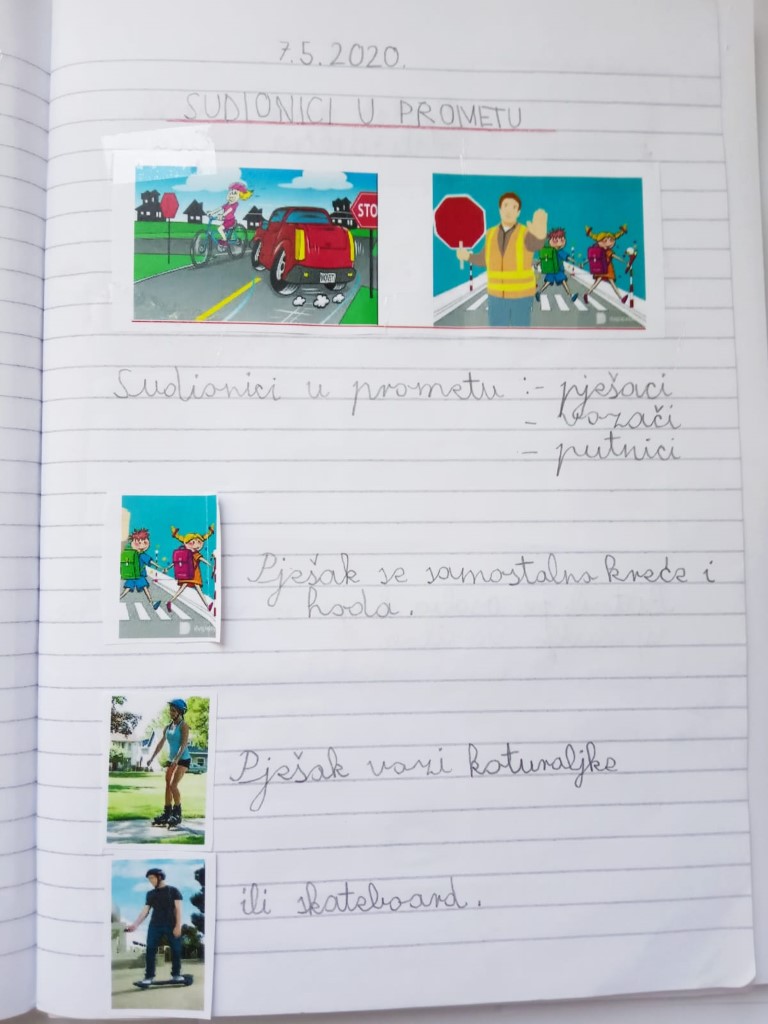 7.5.2020.
SUDIONICI U PROMETU
STO
Sudionici u prometu :- pješaci
- vozači
- putnici
Pješak se samostalno kreće i
hoda.
Pješak vozi koturaljke
ili skateboard.